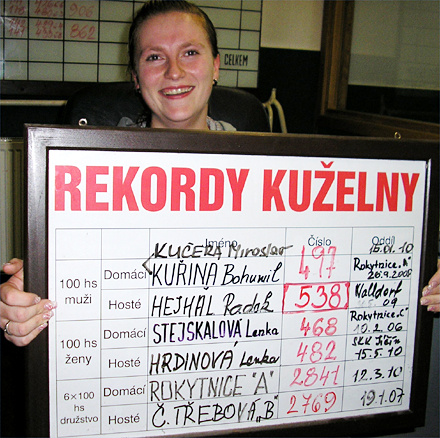 906
862
CELKEM
REKORDY KUŽELNY
Jméno Číslo Oddíl
KUČERA Miroslav 16.01.10
100 hs muži Domácí KUŘINA Bohumil 497 Rokytnice "A" 20.9.2008
Hosté HEJHAL Radek 538 Walldorf 09
100 hs ženy Domácí STEJSKALOVÁ Lenka 468 Rokytnice "C" 10.2.06
Hosté HRDINOVÁ Lenka 482 SKK Jičín 15.5.10
6x100 hs družstvo Domácí ROKYTNICE "A" 2841 12.3.10
Hosté Č. TŘEBOVÁ „B" 2769 19.1.07